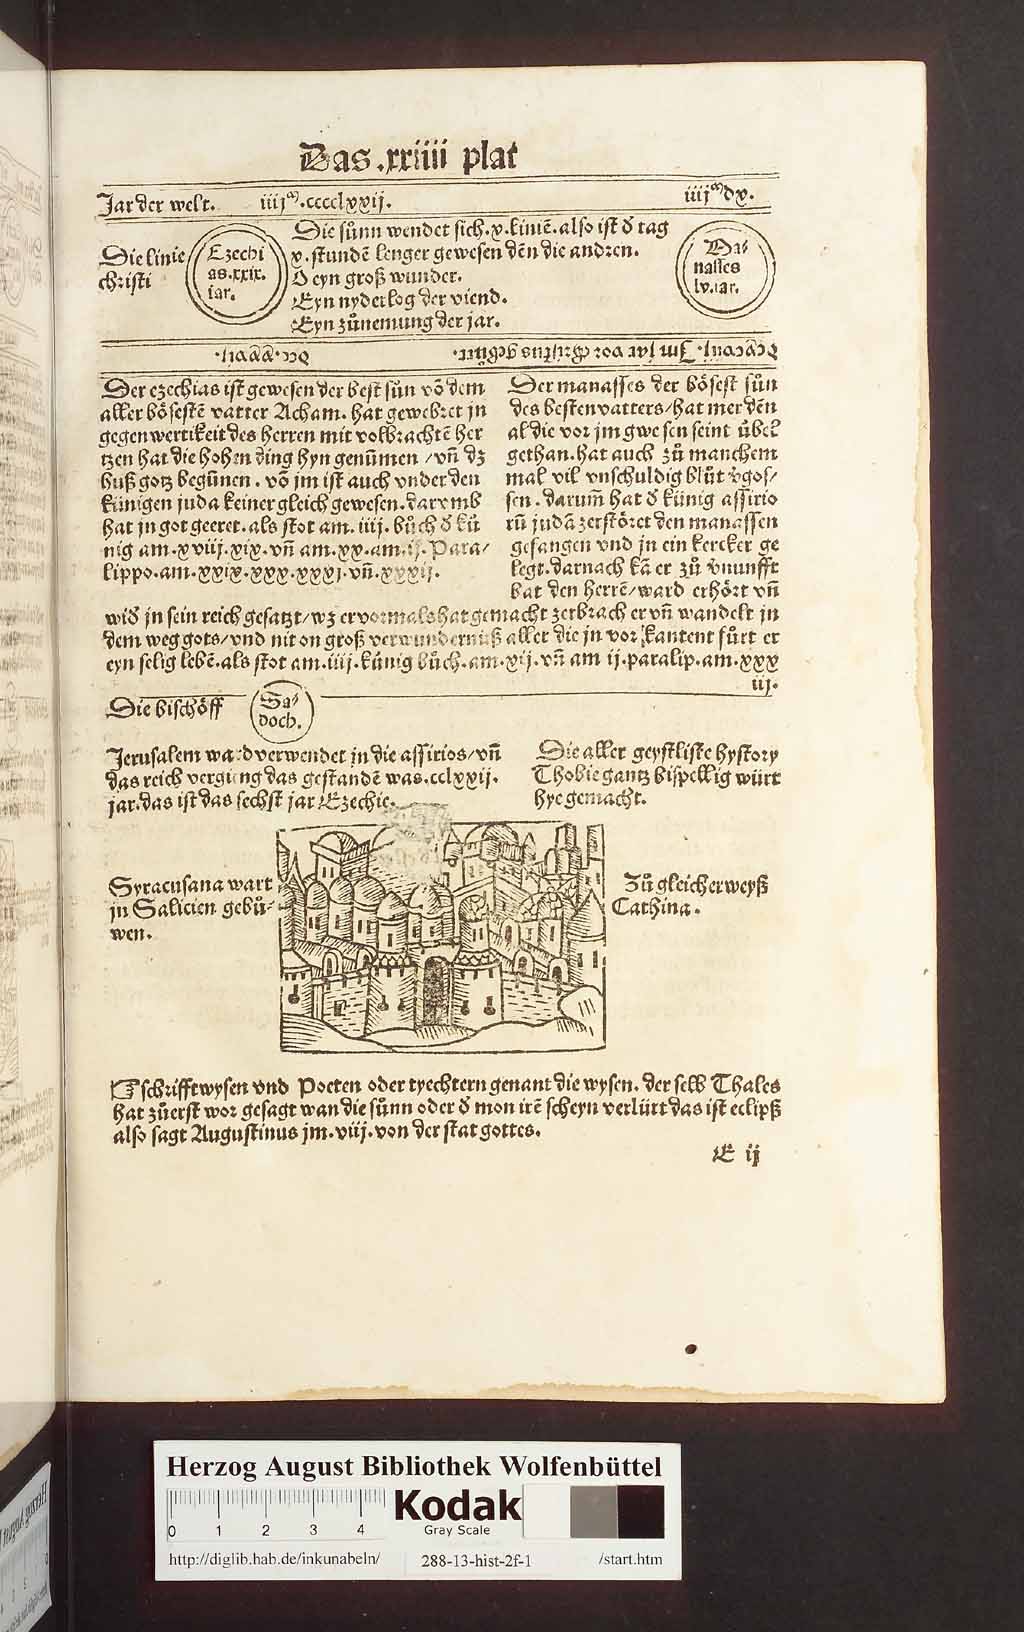 Das .xxiiii plat
Jar der welt. iiijͫ.cccclxxij. iiijͫdx.
Die linie christi
Ezechi
as.xxix.
iar.
Die sůnn wendet sich.x.liniē.also ist d̕ tag
x.stundē lenger gewesen dēn die andren.
O eyn groß wunder.
Eyn nyderlog der viend.
Eyn zůnemung der jar.
Ma⸗
nasses
lv.iar.
Jm jar vor Christus gebůrt.
Der ezechias ist gewesen der best sůn vō dem
aller bősestē vatter Acham. hat gewebret jn
gegenwertikeit des herren mit volbrachtē her
tzen hat die hohen ding hyn genūmen /vn̄ dz
huß gotz begūnen. vō jm ist auch vnder den
kůnigen juda keiner gleich gewesen.darvmb
hat jn got geeret.als stot am. iiij. bůch d̕ ků
nig am.xviij.xix.vn̄ am.xx.am.ij. Para/
lippo.am.xxix.xxx.xxxj.vn̄.xxxij.
Der manasses der bősest sůn
des besten vatters/hat mer dēn
al die vor jm gwesen seint ůbel
gethan.hat auch zů manchem
mal vil vnschuldig blůt v̕gos/
sen. darum̄ hat d̕ kůnig assirio
rū judā zerstőret den manassen
gefangen vnd jn ein kercker ge
legt.darnach kā er zů v̕nunfft
bat den herrē/ward erhőrt vn̄
wid̕ jn sein reich gesatzt/wz er vormals hat gemacht zerbrach er vn̄ wandelt jn
dem weg gots/vnd nit on groß verwundernůß aller die jn vor kantent fůrt er
eyn selig lebē.als stot am.iiij.kůnig bůch.am.xij.vn̄ am ij.paralip.am.xxx
iij.
Die bischőff
Sa⸗
doch.
Jerusalem ward verwendet jn die assirios/vn̄
das reich vergieng das gestandē was.cclxxij.
jar.das ist das sechst jar Ezechie.
Die aller geystliste hystory
Thobie gantz bispellig wůrt
hye gemacht.
Syracusana wart
jn Salicien gebů⸗
wen.
Zů gleicher weyß
Cathina.
☞ schrifftwysen vnd Poeten oder tyechtern genant die wysen. der selb Thales
hat zůerst wor gesagt wan die sůnn oder d̕ mon irē scheyn verlůrt das ist eclipß
also sagt Augustinus jm.viij.von der stat gottes.
E ij
Herzog August Bibliothek Wolfenbüttel
0 1 2 3 4
Kodak
Gray Scale
http://diglib.hab.de/inkunabeln/ 288-13-hist-2f-1 /start.htm